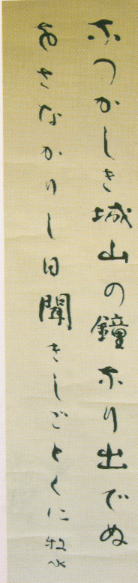 なつかしき城山の鐘なり出でぬ
をさなかりし日聞きしごとくに 牧水